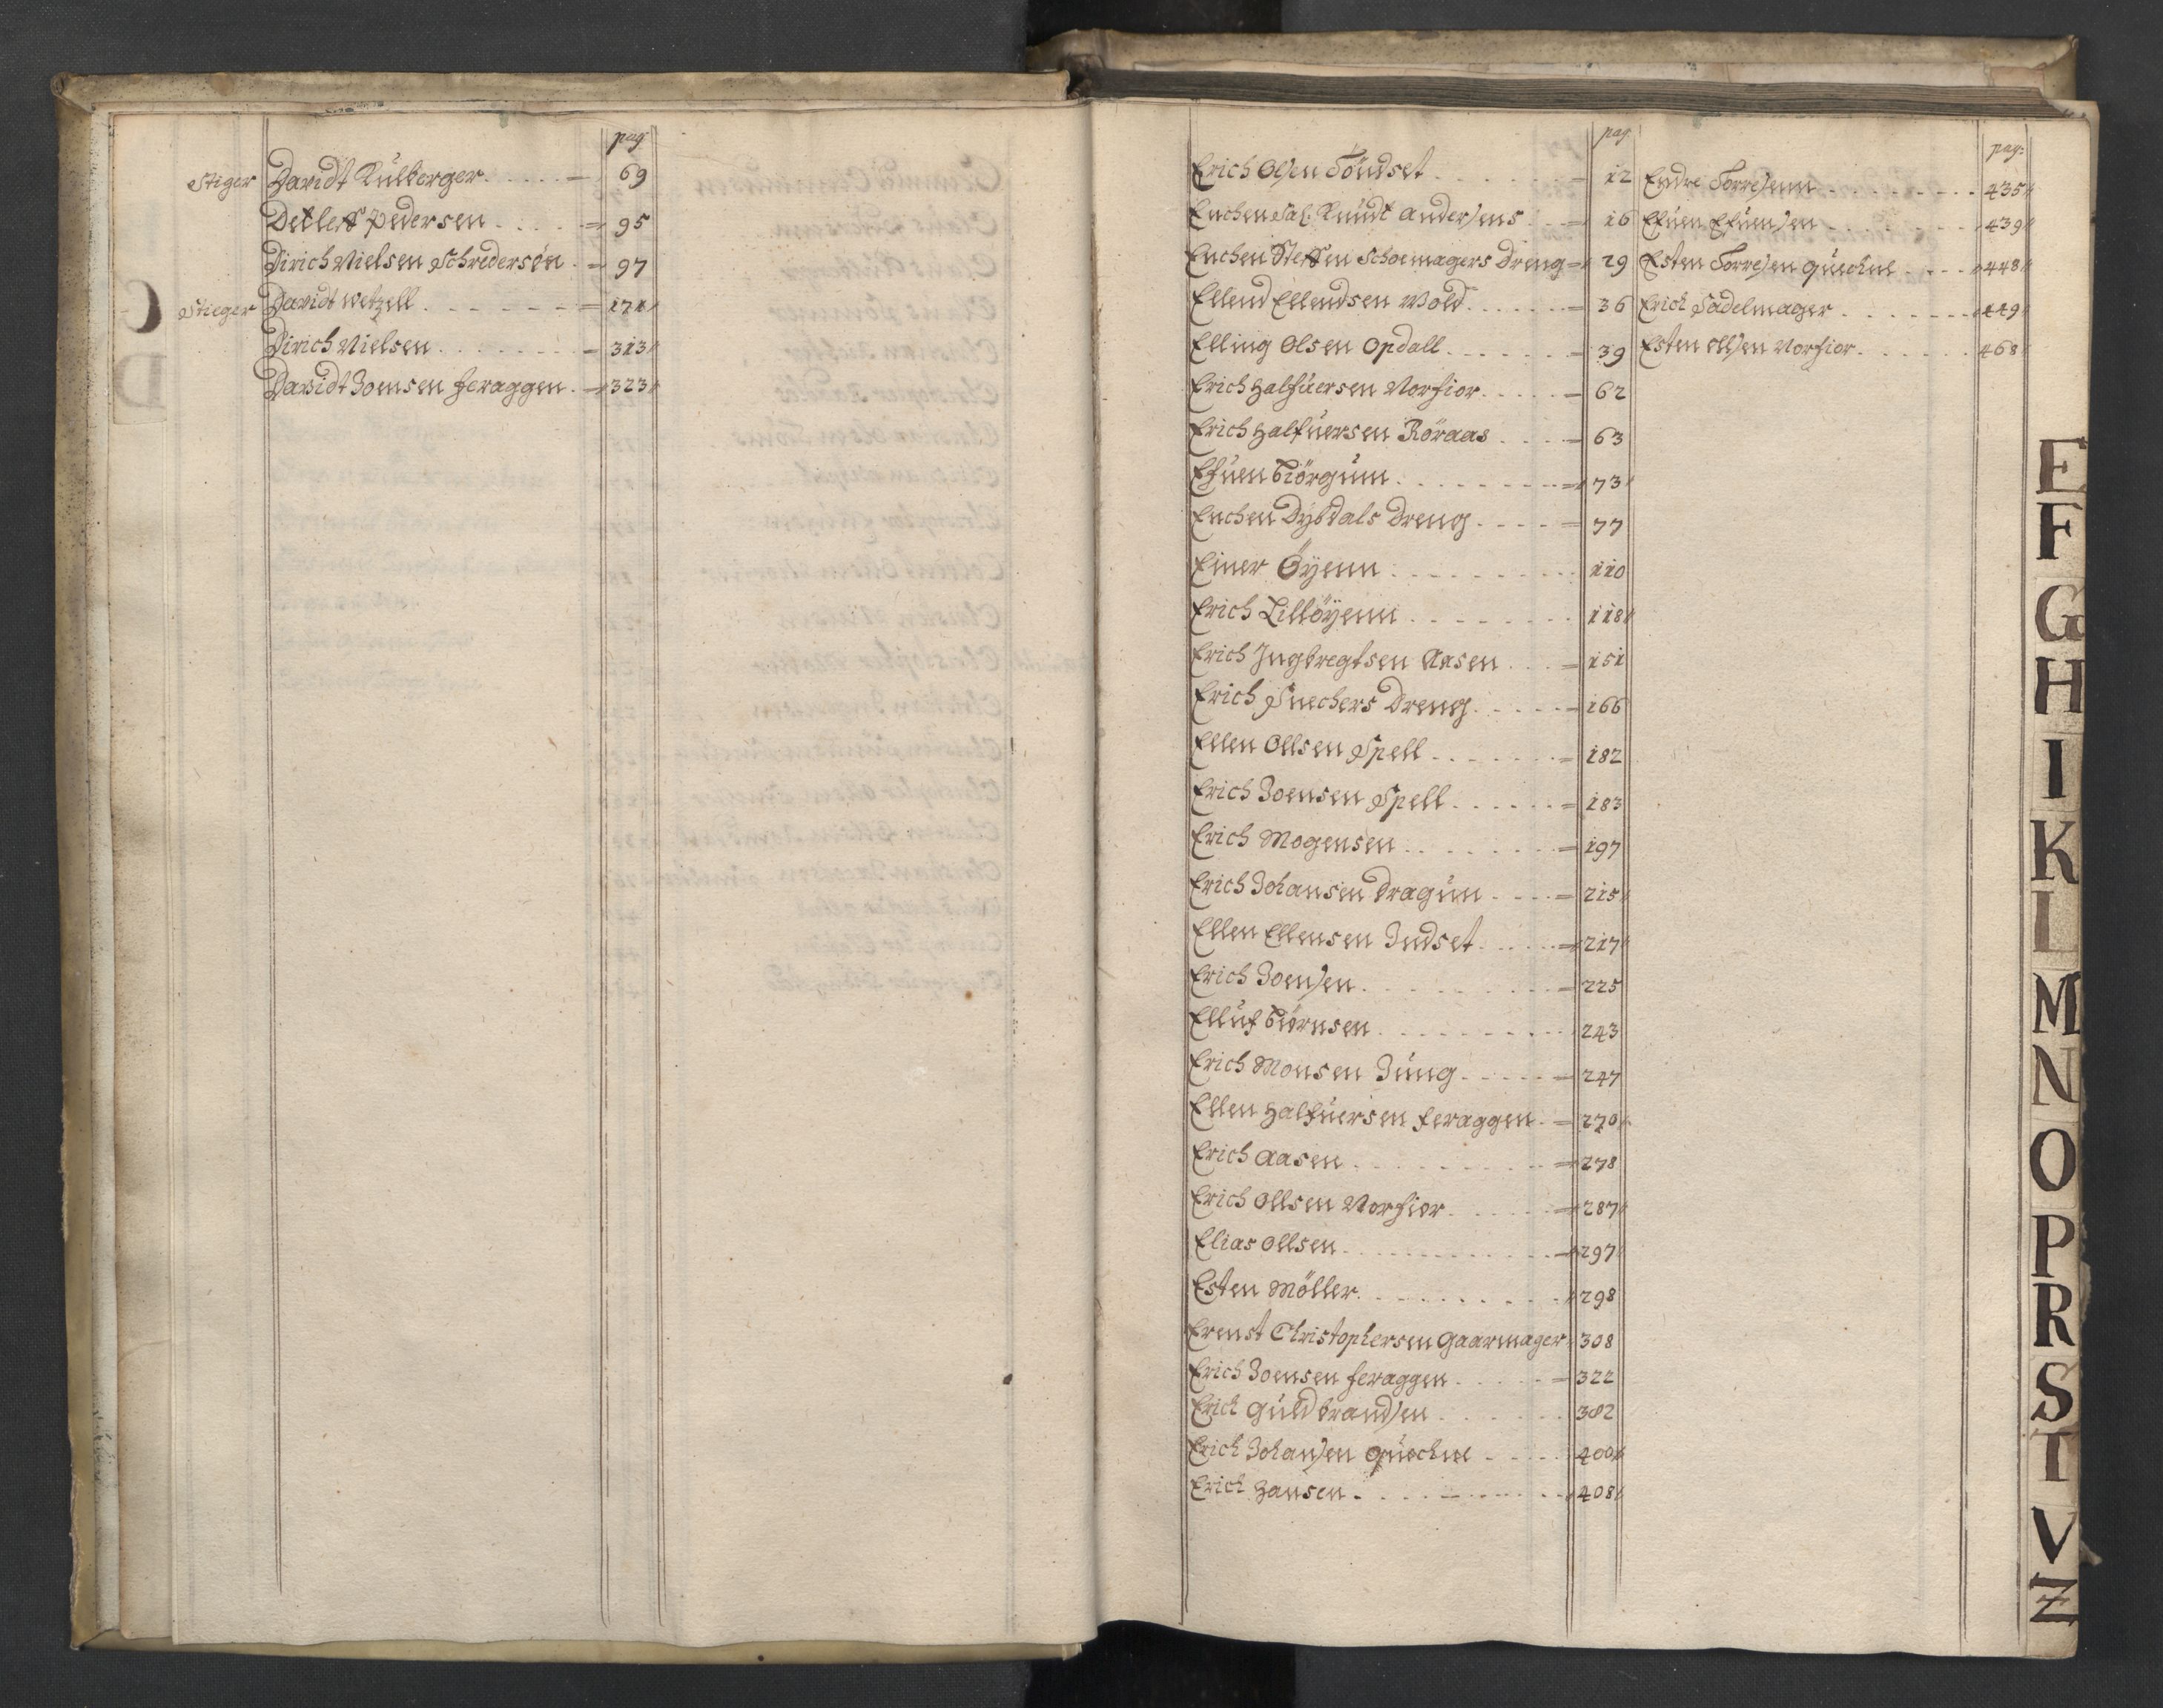 pag
Stiger Davidt Kulberger 69
Detleff Pedersen 95
Dirich Nielsen Schredersøn 97
Stieger Davidt Wetzell 171
Dirich Nielsen 313
Davidt Joensen feraggen 323
C
D
pag
Erich Olsen Töndset 12
Enchen Sal: Knudt Andersens 16
Enchen Steffen Schoemagers Dreng 29
Ellend Ellendsen Wold 36
Elling Olsen Opdall 39
Erich Halfuersen Norfior 62
Erich Halfuersen Röraas 63
Efuen Biörgum 73
Enchen Dybdals Dreng 77
Einer Öyenn 110
Erich Lillöyenn 118
Erich Ingbregtsen Aasen 151
Erich Snechers Dreng 166
Ellen Ollsen Spell 182
Erich Joensen Spell 183
Erich Mogensen 197
Erich Johansen Dragun 215
Ellen Ellensen Indset 217
Erich Joensen 225
Elluf Biørnsen 243
Erich Monsen Jung 247
Ellen Halfuersen feraggen 270
Erich Aasen 278
Erich Ollsen Norfior 287
Elias Ollsen 297
Esten Möller 298
Ernst Christophersen Gaarmager 308
Erich Joensen feraggen 322
Erich Guldbrandsen 382
Erich Johansen Quechne 400
Erich Hansen 408
pag:
Endre Torresenn 435
Efuen Efuensen 439
Esten Torresen Quechne 448
Erich Sadelmager 449
Esten Ollsen Norfior 468
E
F
G
H
I
K
L
M
N
O
P
R
S
T
V
Z